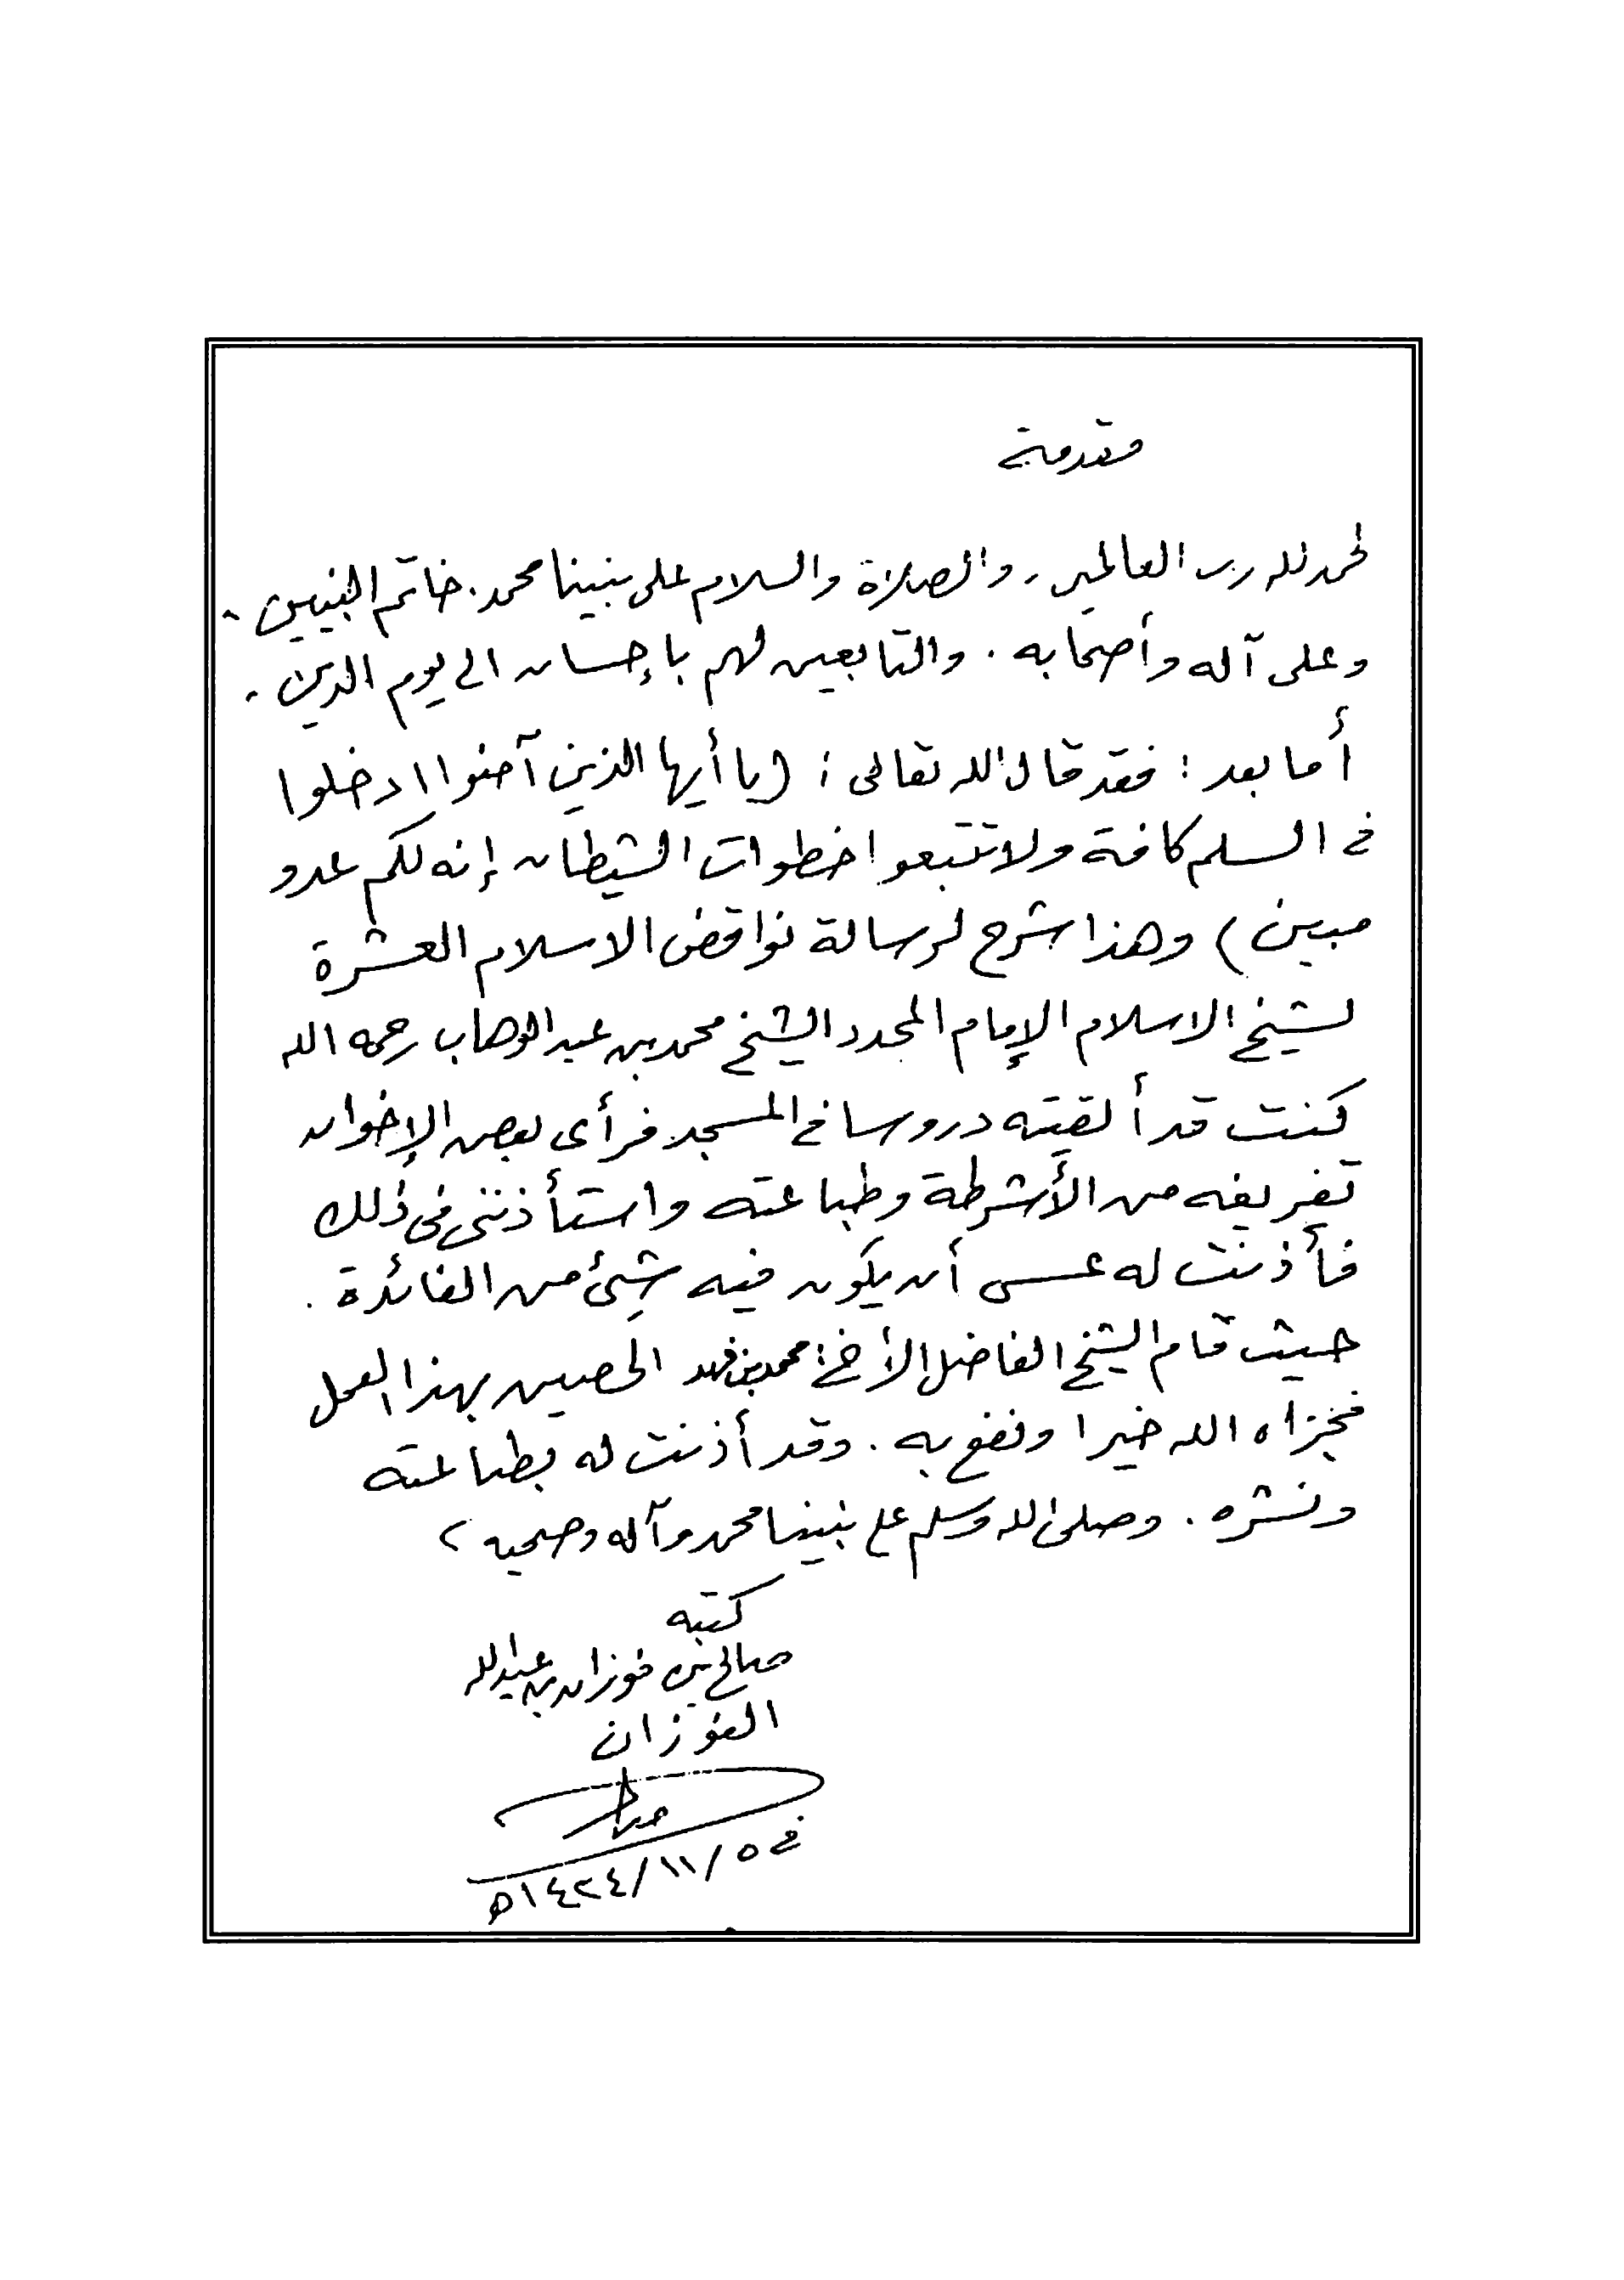 مقدمة
الحمد لله رب العالمين، والصلاة والسلام على نبينا محمد. خاتم النبيين،
وعلى آله وأصحابه. والتابعين لهم بإحسان الى يوم الدين.
أما بعد: فقد قال الله تعالى: (يا أيها الذين آمنوا ادخلوا
في السلم كافة ولا تتبعوا خطوات الشيطان إنه لكم عدو
مبين) وهذا شرح لرسالة نواقض الاسلام العشرة
لشيخ الاسلام الإمام المجدد الشيخ محمد بن عبد الوهاب رحمه الله
كنت قد ألقيته دروسا في المسجد فرأى بعض الإخوان
تفريغه من الأشرطة وطباعته واستأذنني في ذلك
فأذنت له عسى أن يكون فيه شيئ من الفائدة.
حيث قام الشيخ الفاضل الأخ: محمد بن فهد الحصين بهذا العمل
فجزاه الله خيرا ونفع به. وقد أذنت له بطباعته
ونشره. وصلى الله وسلم على نبينا محمد وآله وصحبه
كتبه
صالح بن فوزان بن عبدالله
الفوزان
في ٥/١١/١٤٢٤ه